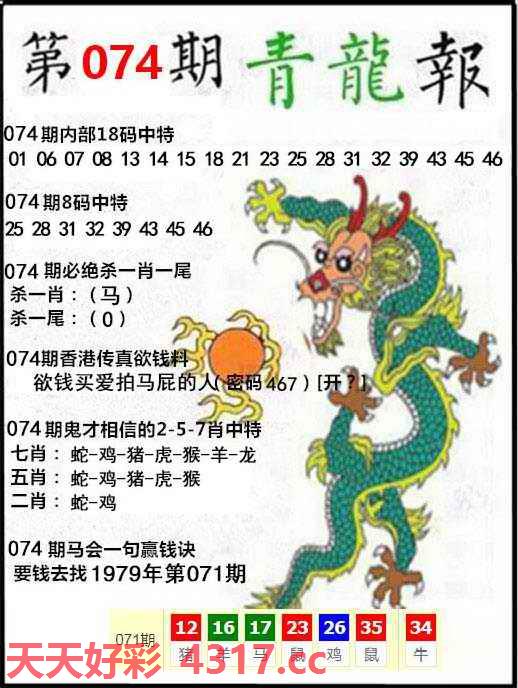 第074期 青龍報
074期内部18码中特
01 06 07 08 13 14 15 18 21 23 25 28 31 32 39 43 45 46
074期8码中特
25 28 31 32 39 43 45 46
074期必绝杀一肖一尾
杀一肖:(马)
杀一尾:(0)
074期香港传真欲钱料
欲钱买爱拍马屁的人(密码467)[开?]
074期鬼才相信的2-5-7肖中特
七肖:蛇-鸡-猪-虎-猴-羊-龙
五肖:蛇-鸡-猪-虎-猴
二肖:蛇-鸡
074期马会一句赢钱诀
要钱去找1979年第071期
071期 12 16 17 23 26 35 34
猪 羊 马 鼠 鸡 鼠 牛
天天好彩 4317.cc